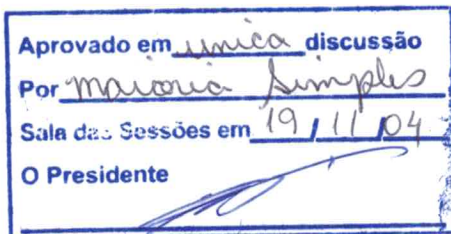 Aprovado em unica discussão
Por maioria simples
Sala das Sessões em 19 / 11 / 04
O Presidente